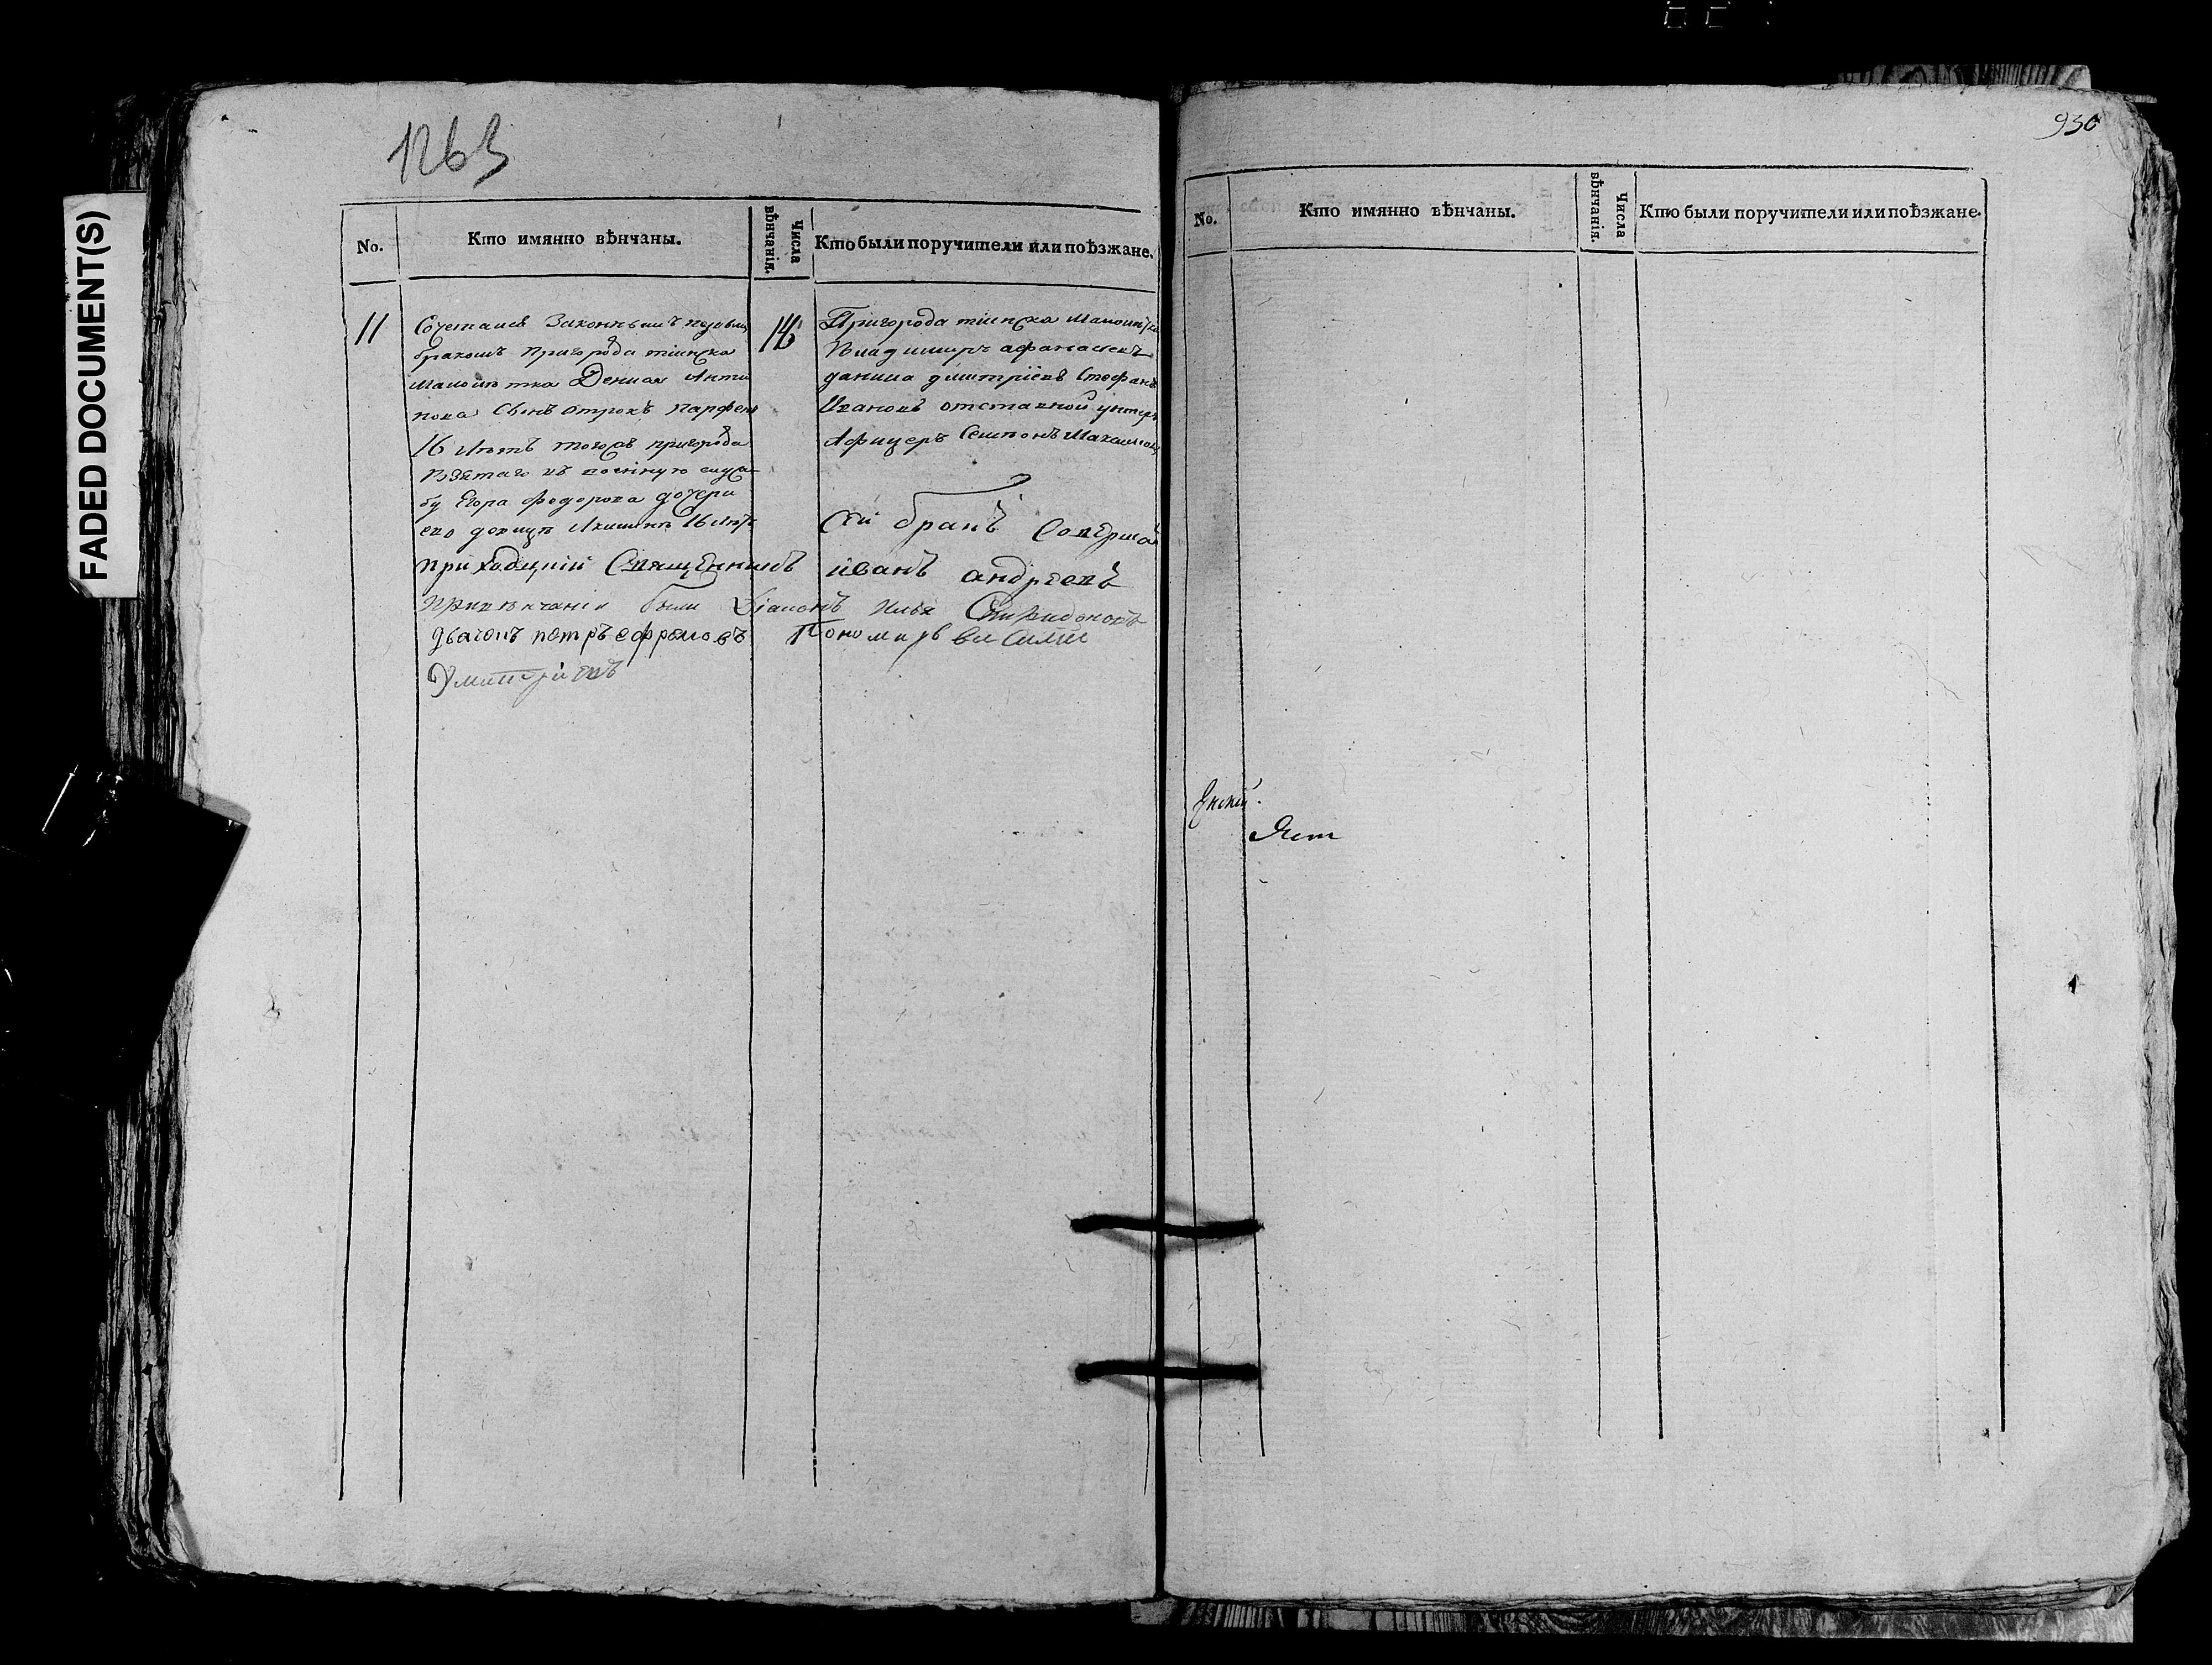 FADED DOCUMENT(S)
1263
No. Кто имянно вѣнчаны. Числа вѣнчанiя. Кто были поручители или поѣзжане.
11
Сочетался Законнымъ первымъ
бракомъ пригорода тiинска
малолѣтка Дениса Анти
пова Сынъ отрокъ парфенъ
16 лѣтъ тогожъ пригорода
взятаго въ военную служ
бу Егора федорова дочерью
ево девицъ Акилина 16 лѣтъ
14
Пригорода тiинска малолѣтки
Владимиръ афанасьевъ
данила дмитрiевъ Стефанъ
Ивановъ отставной унтеръ
Афицеръ Семионъ
Сей бракъ совершалъ
приходцкiй Священникъ iванъ андреевъ
привѣнчанiи были Дiаконъ Илья Спиридоновъ
дьячокъ петръ ефремовъ Пономарь василiй
Дмитрiевъ
930
No. Кто имянно вѣнчаны. Числа вѣнчанiя. Кто были поручители или поѣзжане.